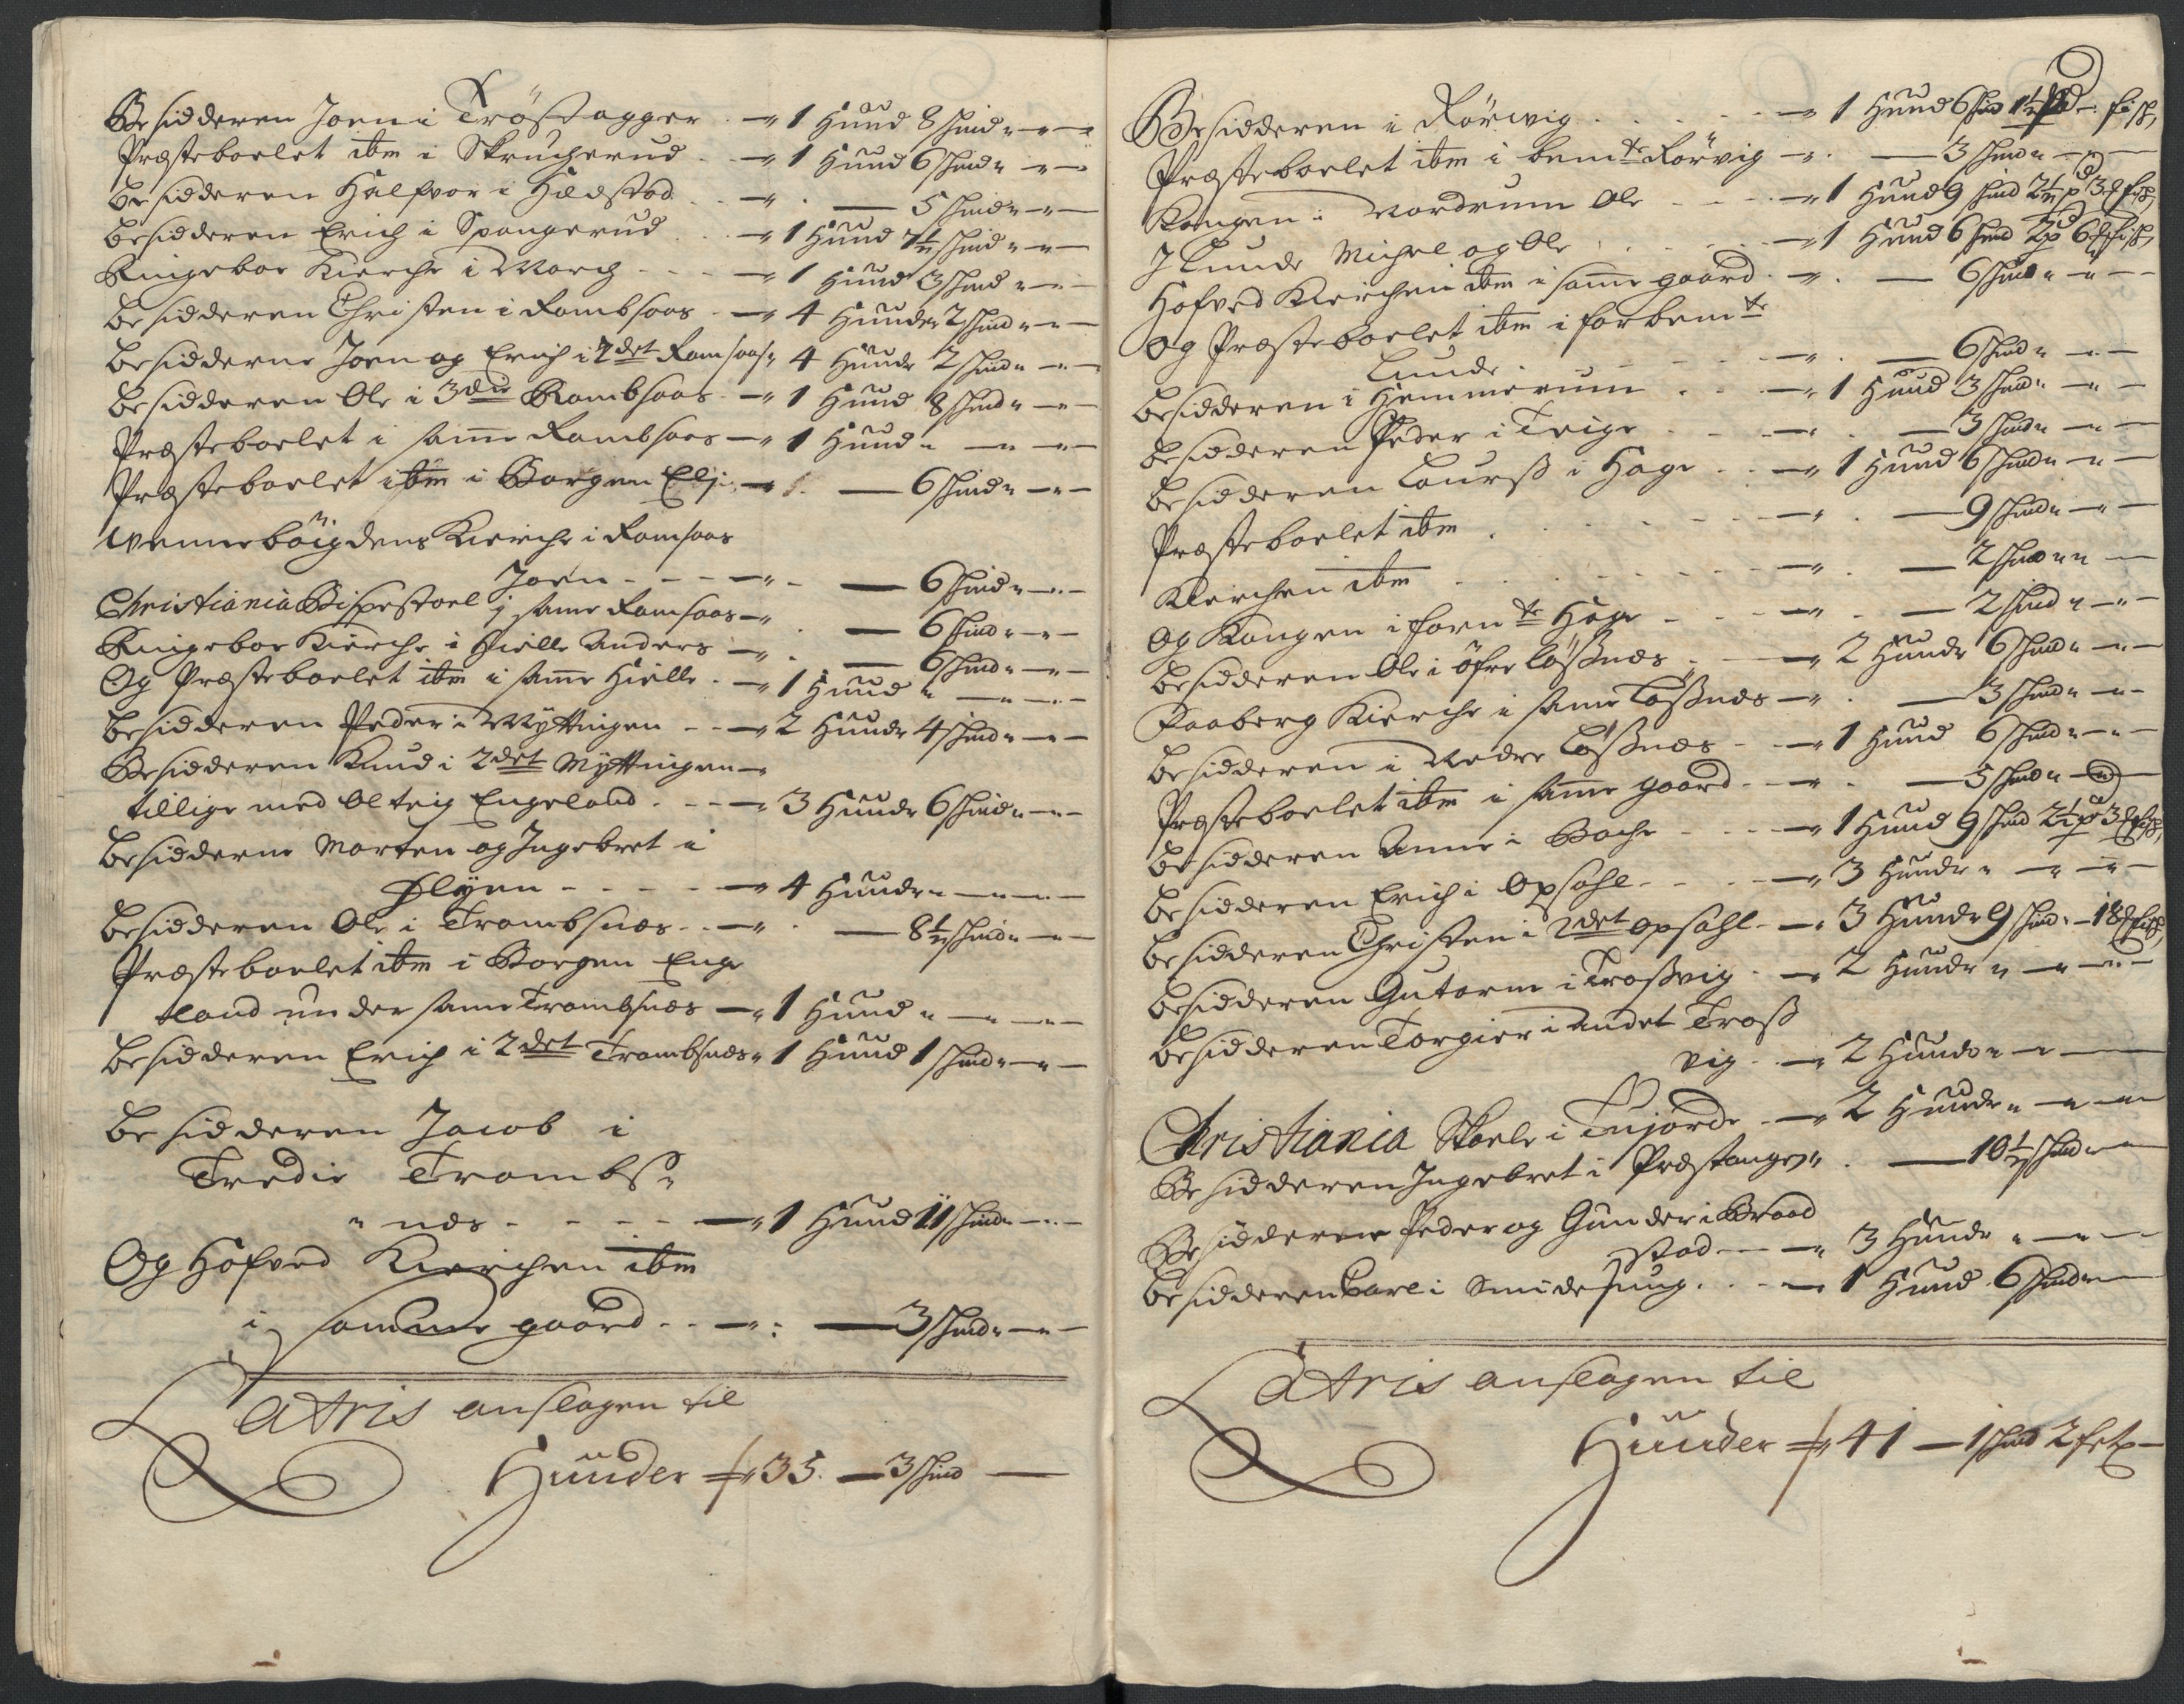 Besidderen Joen i Tröstagger - 1 Hud 8 skind
Præsteboelet ibm i Skrucherud - 1 Hud 6 skind
besidderen Halfvor i Hædstad - 5 skind
besidderen Erich i Spangerud - 1 Hud 7½ skind
Ringeboe Kierche i Morch - 1 Hud 3 skind
besidderen Christen i Rambsaas - 4 Huuder 2 skind
besidderne Joen og Erich i 2det Ramsaas 4 Hude 2 skind
besidderen Ole i 3die Rambsaas - 1 Hud 8 skind
Præsteboelet i samme Rambsaas - 1 Hud
Præsteboelet ibm i Borgen Elje - 6 skind
Wenneböigdens Kierche i Ramsaas
Joen - 6 skind
Christiania Bispestoel i samme Ramsaas - 6 skind
Ringeboe Kierche i Hielle Anders - 6 skind
Og Præsteboelet ibm i samme Hielle - 1 Hud
besidderen Peder i Myttingen - 2 Hude 4 skind
Besidderen Knud i 2det Myttingen
tillige med Olteig Engeland - 3 Hude 6 skind
besidderne Morten og Ingebret i
Flÿen - 4 Hude
besidderen Ole i Trombsnes - 8½ skind
Præsteboelet ibm i Borgen Enge
land under samme Trombsnes - 1 Hud
besidderen Erich i 2det Trombsnes 1 Hud 1 skind
besidderen Jacob i
Tredie Trombs
nes - 1 Hud 11 skind
Og Hofved Kierchen ibm
i samme gaard - 3 skind
Latris anslagen til
Huuder 35 - 3 skind
Besidderen i Rörwig - 1 Hud 6 skind 1½ pd fisk
Præsteboelet ibm i bemte Rörvig - 3 skind
Kongen i Nordrum Ole - 1 Hud 9 skind 2½ pd 3 fisk
J Lunde Michel og Ole - 1 Hud 6 skind 2 pd 6 fisk
Hofved Kierchen ibm i samme gaard - 6 skind
Og Præsteboelet ibm i forbemte
Lunde - 6 skind
besidderen i Hemmerum - 1 Hud 3 skind
besidderen Peder i Teige - 3 skind
besidderen Lourß i Hage - 1 Hud 6 skind
Præsteboelet ibm - 9 skind
Kierchen ibm - 2 skind
Og Kongen i fornte Hage - 2 skind
besidderen Ole i öfre Lößnes - 2 Hude 6 skind
Faaberg Kierche i samme Lößnes - 3 skind
besidderen i Nedre Lößnes - 1 Hud 6 skind
Præsteboelet ibm i samme gaard - 3 skind
besidderen Anne i Bache - 1 Hud 9 skind 2½ pd 3 fisk
besidderen Erich i Opsahl - 3 Hude
besidderen Christen i 2det opsahl - 3 Hude 9 skind - 18 fisk
besidderen Gutorm i Troßvig - 2 Hude
besidderen Torgier i Andet Troß
vig - 2 Hude
Christiania Skoele i Tujorde - 2 Hude
Besidderen Ingebret i Præstangen - 10½ skind
Besidderne Peder og Gunder i Braad
stad - 3 Hude
besidderen Carl i Smidesung - 1 Hud 6 skind
Latris anslagen til
Huuder 41 - 1 skind 2